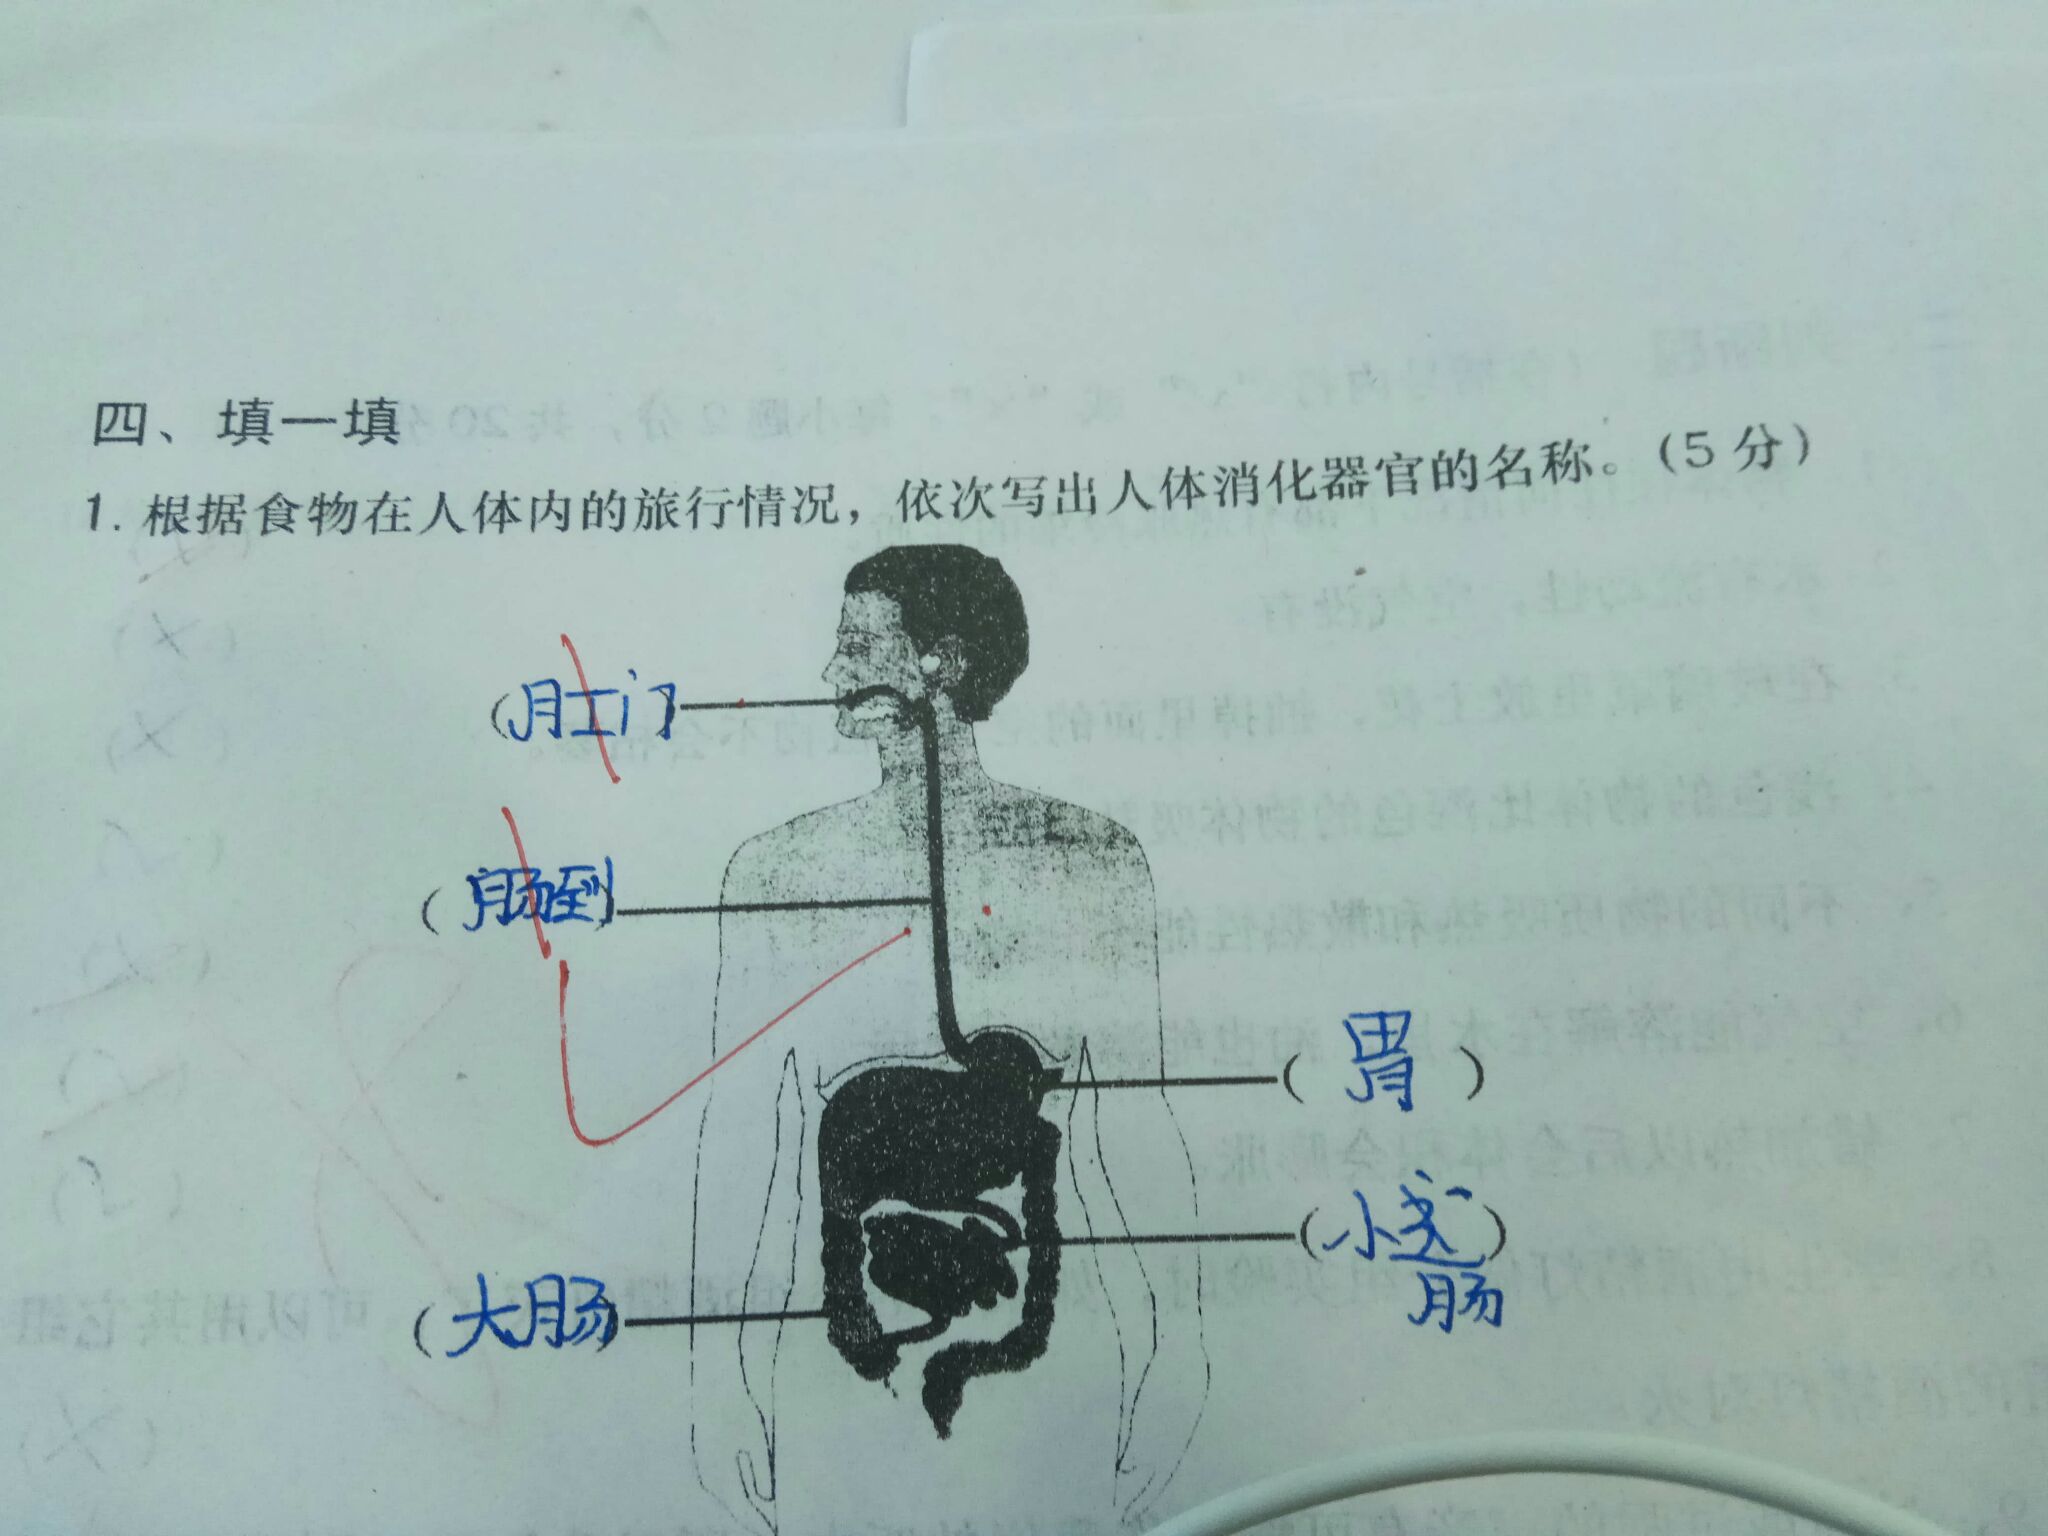 四、填一填
1. 根据食物在人体内的旅行情况，依次写出人体消化器官的名称。(5分)
(肛门)
(肠到)
(胃)
(小
肠)
(大肠)